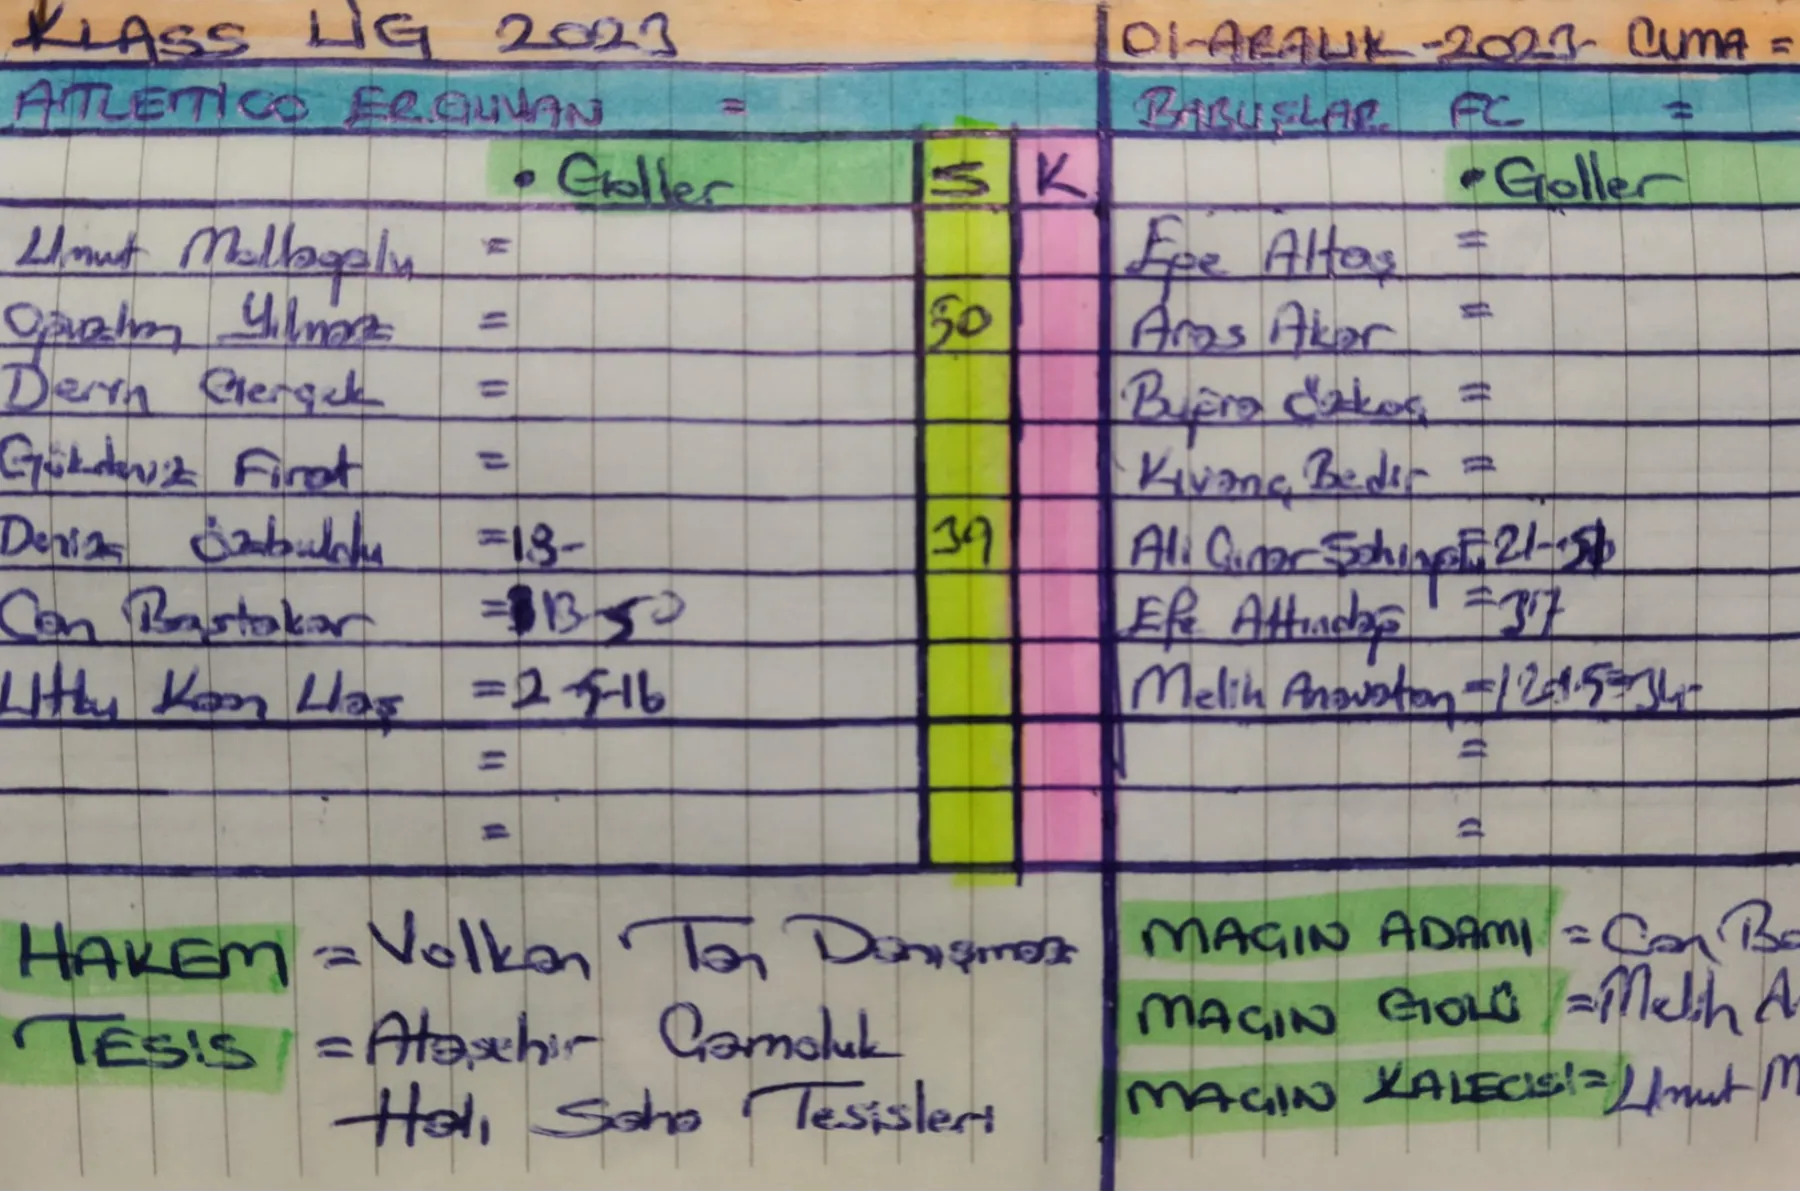 KLASS LİG 2023
01-ARALIK-2023- CUMA =
ATLETICO ERGUVAN =
BABUŞLAR FC =
• Goller S K
• Goller
Umut Mollaoğlu =
Efe Altaş =
Oğuzhan Yılmaz = 50
Aras Akar =
Derin Gerçek =
Buğra Özkoç =
Gökdeniz Fırat =
Kıvanç Bedir =
Deniz Özbuldu =18- 39
Ali Çınar = 21-
Can Bastakar = 13-50
Efe Altındağ =37
Utku Kaan Uaş =2-5-16
Melih Anavatan =12-15-34-
=
=
=
=
HAKEM = Volkan Tan Danışmaz
TESİS = Ataşehir Çamoluk
Halı Saha Tesisleri
MAÇIN ADAMI = Can Ba
MAÇIN GOLÜ = Melih A
MAÇIN KALECİSİ = Umut M